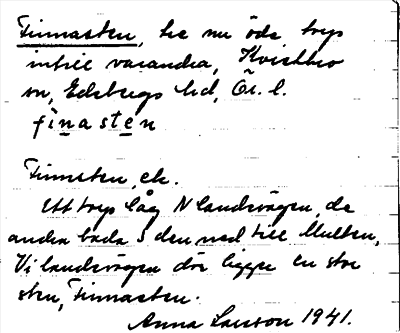 Finnasten, tre nu öde torp
intill varandra, Kvistbro
sn, Edsbergs hd, Ör. l.
finasten
Finnsten, ek.
Ett torp låg N landsvägen, de
andra båda S den ned till Multen,
Vi landsvägen där ligger en stor
sten, Finnasten.
Anna Larsson 1941.